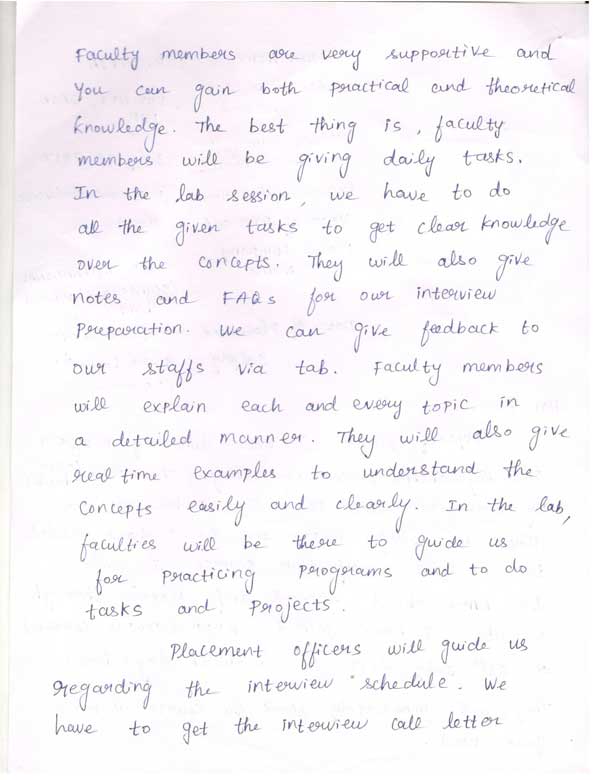 Faculty members are very supportive and
you can gain both practical and theoretical
knowledge. The best thing is, faculty
members will be giving daily tasks.
In the lab session, we have to do
all the given tasks to get clear knowledge
over the concepts. They will also give
notes and FAQs for our interview
preparation. We can give feedback to
our staffs via tab. Faculty members
will explain each and every topic in
a detailed manner. They will also give
real time examples to understand the
concepts easily and clearly. In the lab,
faculties will be there to guide us
for practicing programs and to do
tasks and projects.
Placement officers will guide us
regarding the interview schedule. We
have to get the interview call letter